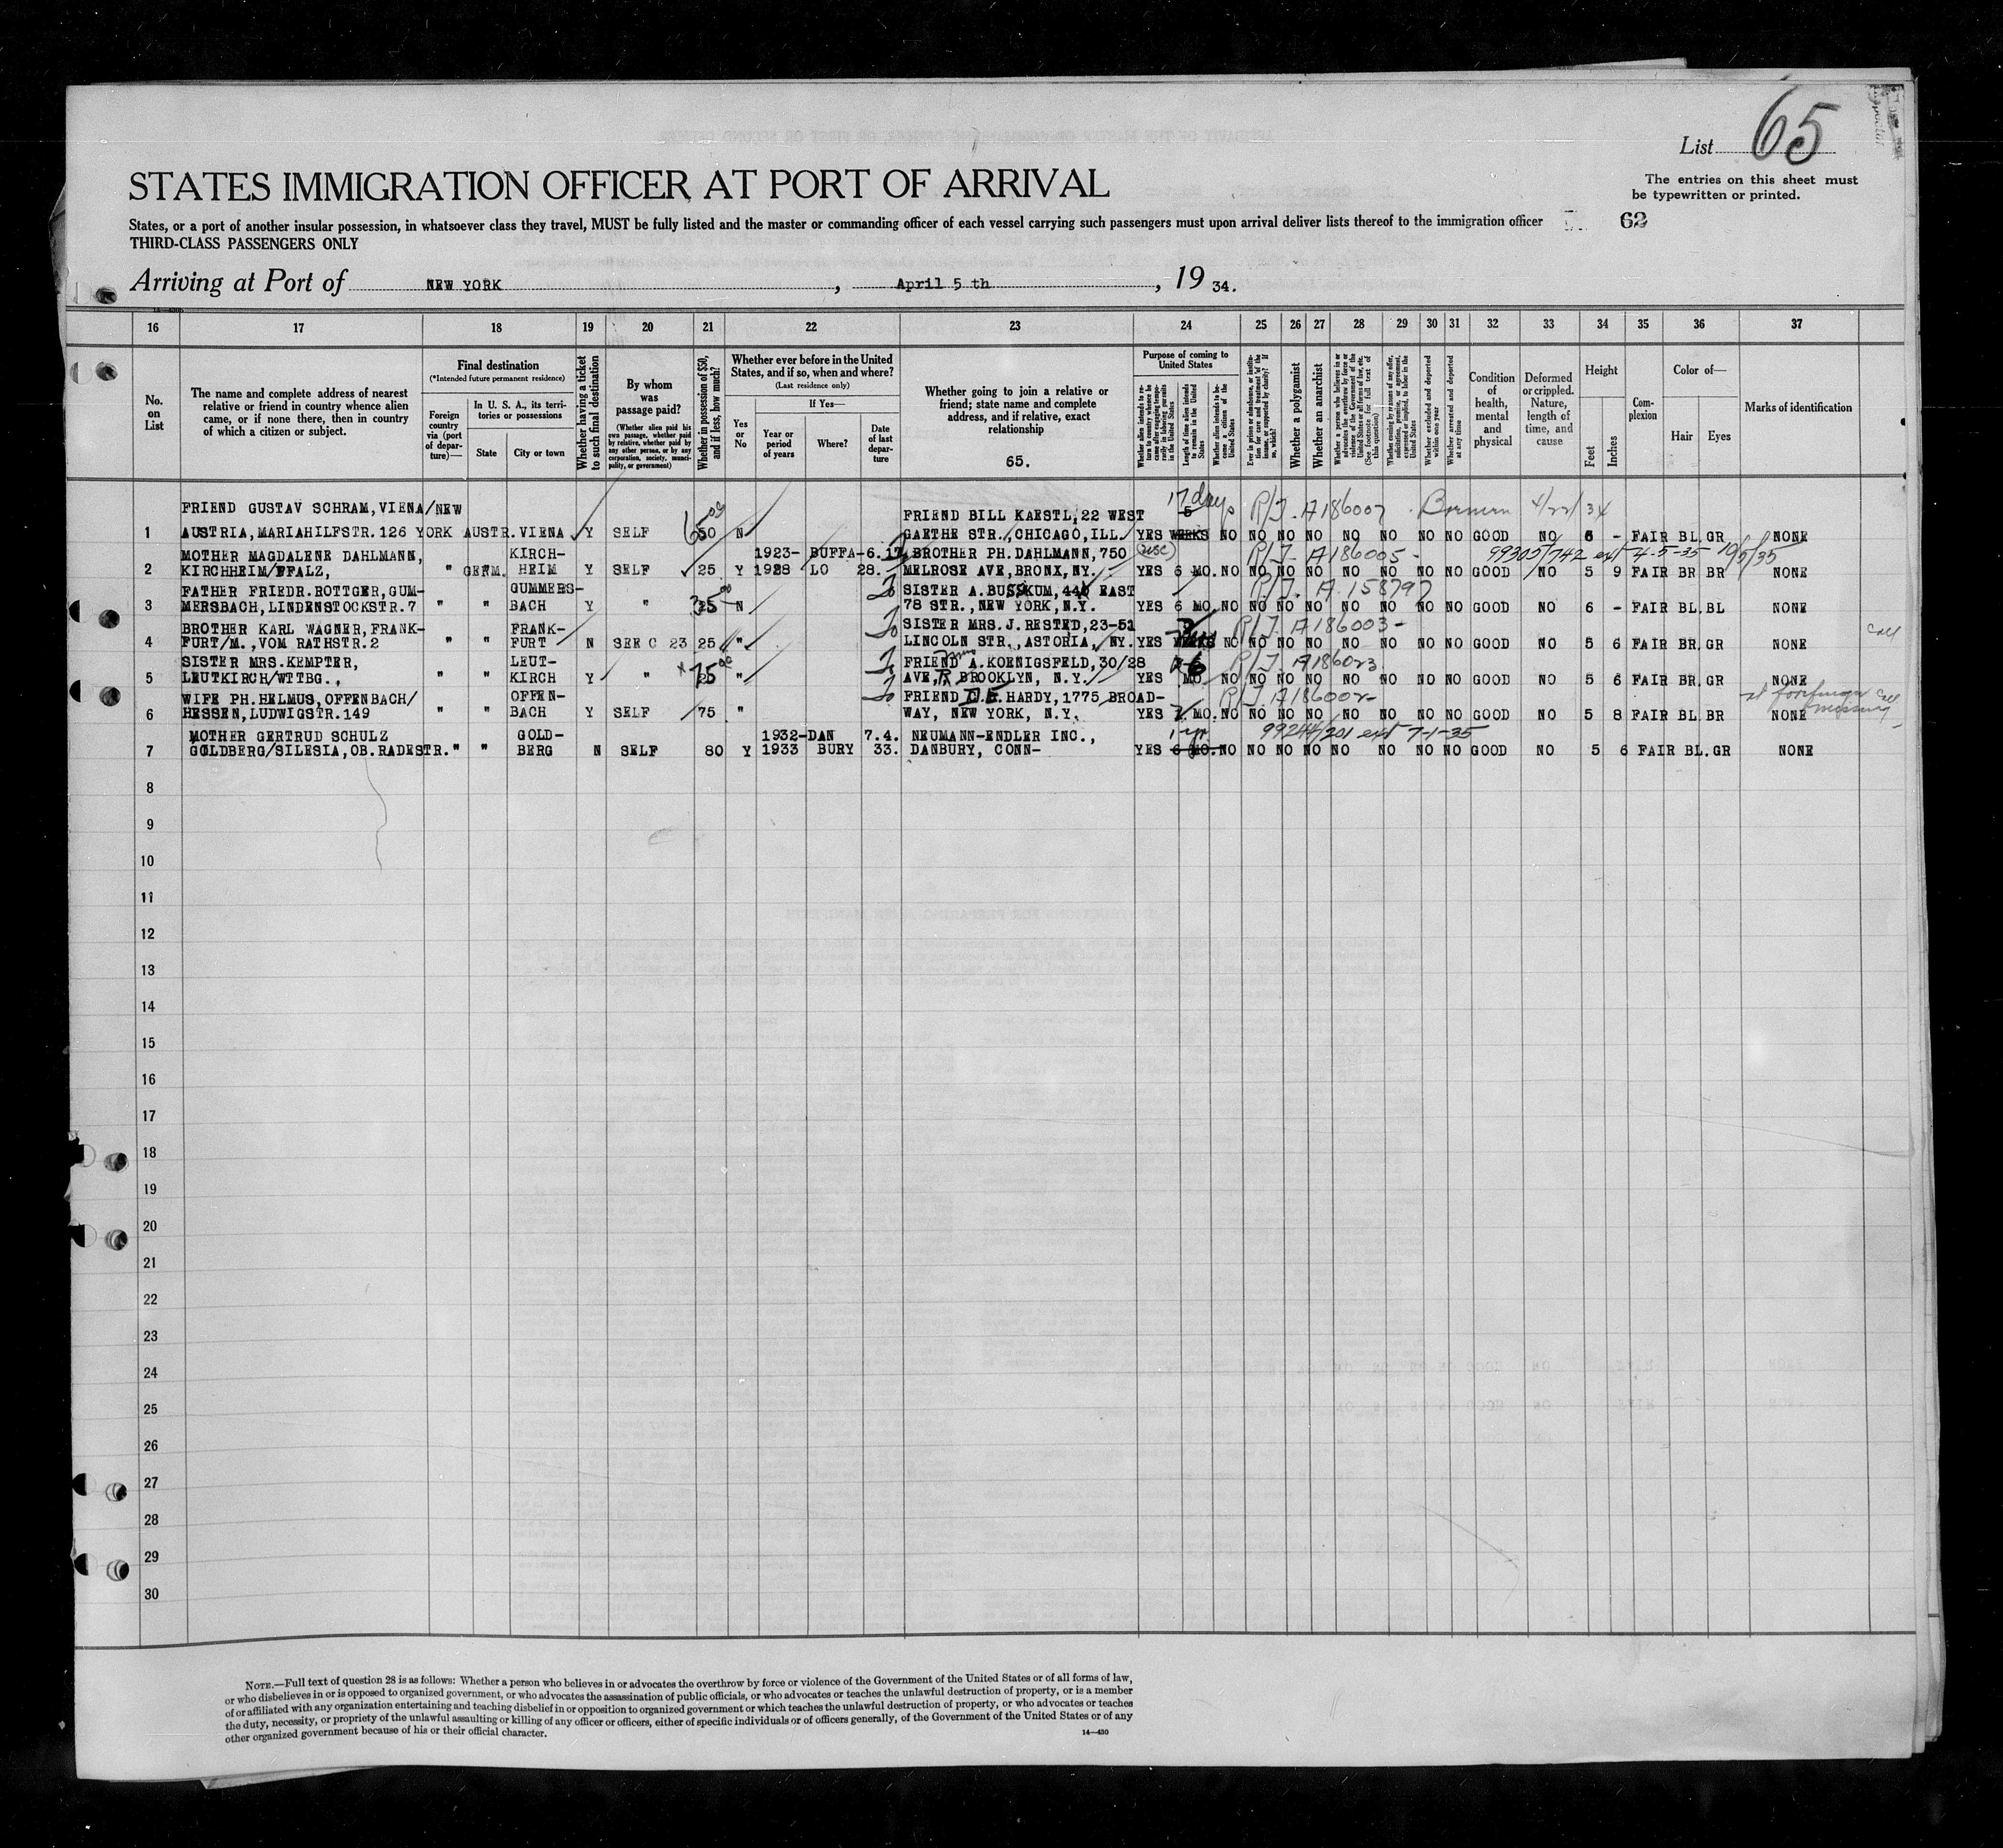 List 65
The entries on this sheet must
be typewritten or printed.
STATES IMMIGRATION OFFICER AT PORT OF ARRIVAL
States, or a port of another insular possession, in whatsoever class they travel, MUST be fully listed and the master or commanding officer of each vessel carrying such passengers must upon arrival deliver lists thereof to the immigration officer
62
THIRD-CLASS PASSENGERS ONLY
Arriving at Port of NEW YORK , April 5 th , 19 34.
16 17 18 19 20 21 22 23 24 25 26 27 28 29 30 31 32 33 34 35 36 37
No. on List
The name and complete address of nearest relative or friend in country whence alien came, or if none there, then in country of which a citizen or subject.
Final destination
(*Intended future permanent residence)
Foreign country via (port of departure)—
In U. S. A., its territories or possessions
State
City or town
Whether having a ticket to such final destination
By whom was passage paid?
(Whether alien paid his own passage, whether paid by relative, whether paid by any other person, or by any corporation, society, municipality, or government)
Whether in possession of $50, and if less, how much?
Whether ever before in the United States, and if so, when and where?
(Last residence only)
Yes or No
If Yes—
Year or period of years
Where?
Date of last departure
Whether going to join a relative or friend; state name and complete address, and if relative, exact relationship
65.
Purpose of coming to United States
Whether alien intends to return to country whence he came after engaging temporarily in laboring pursuits in the United States
Length of time alien intends to remain in the United States
Whether alien intends to become a citizen of the United States
Ever in prison or almshouse, or institution for care and treatment of the insane, or supported by charity? If so, which?
Whether a polygamist
Whether an anarchist
Whether a person who believes in or advocates the overthrow by force or violence of the Government of the United States or all forms of law, etc. (See footnote for full text of this question)
Whether coming by reason of any offer, solicitation, promise, or agreement, expressed or implied, to labor in the United States
Whether excluded and deported within one year
Whether arrested and deported at any time
Condition of health, mental and physical
Deformed or crippled. Nature, length of time, and cause
Height
Feet
Inches
Complexion
Color of—
Hair
Eyes
Marks of identification
FRIEND GUSTAV SCHRAM, VIENA/NEW FRIEND BILL KAESTL, 22 WEST 17 days 5 R/J. A186007 Bremen 4/22/34
1 AUSTRIA, MARIAHILFSTR. 126 YORK AUSTR. VIENA Y SELF 65 00 N GAETHE STR., CHICAGO, ILL. YES WEEKS NO NO NO NO NO NO NO NO GOOD NO 6 - FAIR BL. GR NONE
MOTHER MAGDALENE DAHLMANN, KIRCH- 1923- BUFFA- 6.17. BROTHER PH. DAHLMANN, 750 (USC) R/J. A186005- 99305/742 ext 4-5-35 10/5/35
2 KIRCHHEIM/PFALZ, " GERM. HEIM Y SELF 25 Y 1928 LO 28. MELROSE AVE, BRONX, NY. YES 6 MO. NO NO NO NO NO NO NO NO GOOD NO 5 9 FAIR BR BR NONE
FATHER FRIEDR. ROTTGER, GUM- GUMMERS- SISTER A. BUSSKUM, 44 EAST R/J. A 158797
3 MERSBACH, LINDENSTOCKSTR. 7 " " BACH Y " 35 00 N 78 STR., NEW YORK, N.Y. YES 6 MO. NO NO NO NO NO NO NO NO GOOD NO 6 - FAIR BL. BL NONE
BROTHER KARL WAGNER, FRANK- FRANK- SISTER MRS. J. RESTED, 23-51 R/J. A186003- call
4 FURT/M., VOM RATHSTR. 2 " " FURT N SEE C 23 25 " LINCOLN STR., ASTORIA, NY. YES WEEKS NO NO NO NO NO NO NO NO GOOD NO 5 6 FAIR BR. GR NONE
SISTER MRS. KEMPTER, LEUT- FRIEND A. KOENIGSFELD, 30/28 6 R/J. A186023
5 LEUTKIRCH/WTTBG., " " KIRCH Y " 75 00 " AVE, R, BROOKLYN, N.Y. YES MO. NO NO NO NO NO NO NO NO GOOD NO 5 6 FAIR BR. GR NONE
WIFE PH. HELMUS, OFFENBACH/ OFFEN- FRIEND D.E. HARDY, 1775 BROAD- R/J. A186002- call
6 HESSEN, LUDWIGSTR. 149 " " BACH Y SELF 75 " WAY, NEW YORK, N.Y. YES 2 MO. NO NO NO NO NO NO NO NO GOOD NO 5 8 FAIR BL. BR NONE
MOTHER GERTRUD SCHULZ GOLD- 1932- DAN 7.4. NEUMANN-ENDLER INC., 1 yr 99244/201 ext 7-1-35
7 GOLDBERG/SILESIA, OB. RADESTR. " " BERG N SELF 80 Y 1933 BURY 33. DANBURY, CONN- YES 6 MO. NO NO NO NO NO NO NO NO GOOD NO 5 6 FAIR BL. GR NONE
8
9
10
11
12
13
14
15
16
17
18
19
20
21
22
23
24
25
26
27
28
29
30
NOTE.—Full text of question 28 is as follows: Whether a person who believes in or advocates the overthrow by force or violence of the Government of the United States or of all forms of law,
or who disbelieves in or is opposed to organized government, or who advocates the assassination of public officials, or who advocates or teaches the unlawful destruction of property, or is a member
of or affiliated with any organization entertaining and teaching disbelief in or opposition to organized government or which teaches the unlawful destruction of property, or who advocates or teaches
the duty, necessity, or propriety of the unlawful assaulting or killing of any officer or officers, either of specific individuals or of officers generally, of the Government of the United States or of any
other organized government because of his or their official character.
14—430